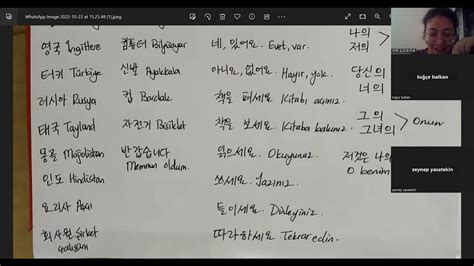 WhatsApp Image 2022-10-23 at 15.25.48 (1).jpeg
영국 İngiltere 컴퓨터 Bilgisayar 네, 있어요. Evet, var.
터키 Türkiye 신발 Ayakkabı 아니요, 없어요. Hayır, yok.
러시아 Rusya 컵 Bardak 책을 펴세요. Kitabı açınız.
태국 Tayland 자전거 Bisiklet 책을 보세요. Kitaba bakınız.
몽골 Moğolistan 반갑습니다 Memnun oldum. 읽으세요. Okuyunuz.
인도 Hindistan 쓰세요. Yazınız.
요리사 Aşçı 들으세요. Dinleyiniz.
회사원 Şirket çalışanı 따라하세요. Tekrar edin.
나의
저의
당신의
너의
그의
그녀의 > Onun
저것은 나의
O benim
tuğçe balkan
tuğçe balkan
zeynep yasatekin
zeynep yasatekin